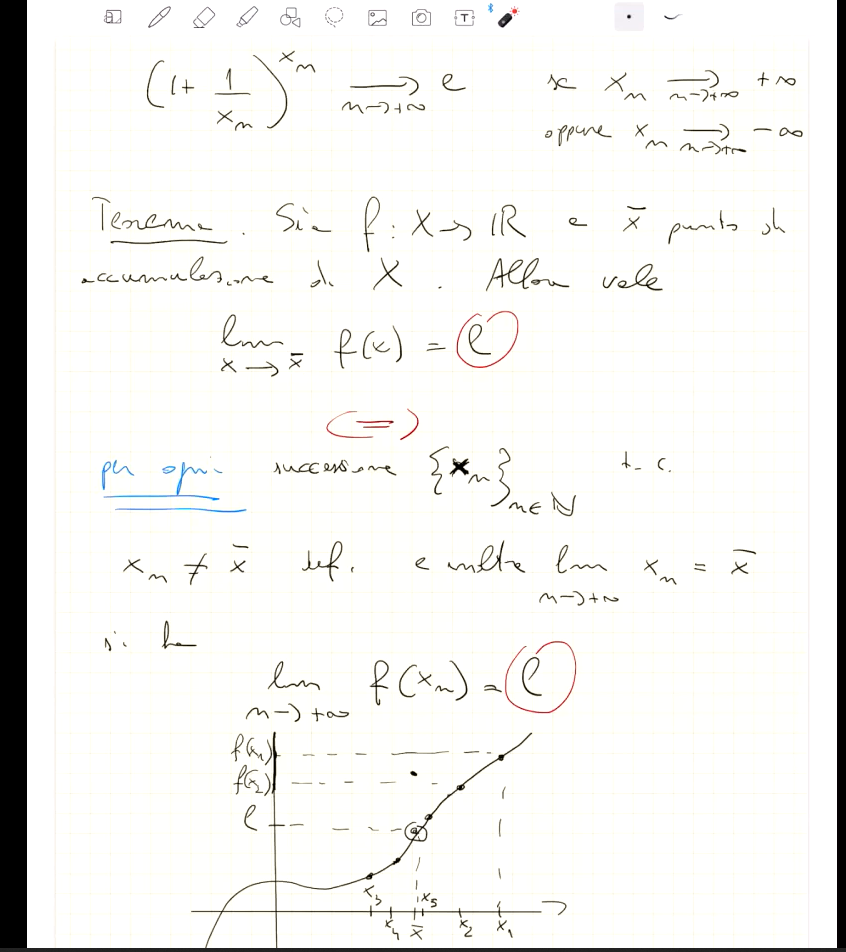 (1 + 1/x_n)^{x_n} ⟶_{n→+∞} e   se x_n ⟶_{n→+∞} +∞
oppure x_n ⟶_{n→+∞} -∞
Teorema. Sia f: X → ℝ e x̄ punto di
accumulazione di X. Allora vale
lim_{x→x̄} f(x) = ℓ
⟺
per ogni successione {x_n}_{n∈ℕ} t.c.
x_n ≠ x̄ def. e inoltre lim_{n→+∞} x_n = x̄
si ha
lim_{n→+∞} f(x_n) = ℓ
f(x_1)
f(x_2)
ℓ
x_3 x_4 x̄ x_5 x_2 x_1